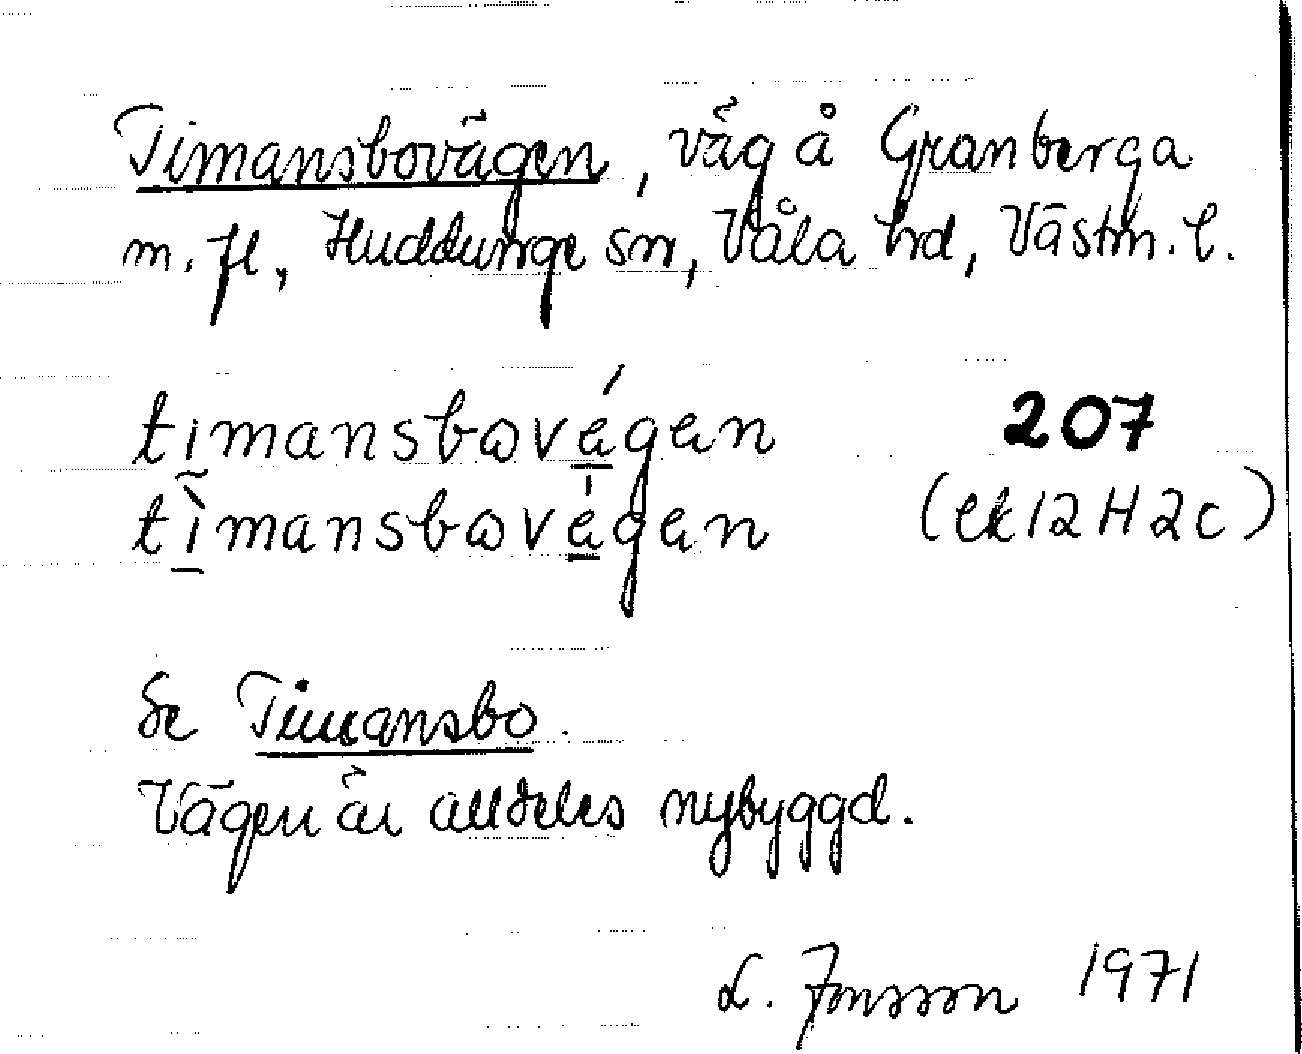 Timansbovägen, väg å Granberga
m. fl., Huddunge sn, Våla hd, Västm. l.
timansbωvágan 207
tìmansbωvágan (ek 12 H 2 c)
Se Timansbo.
Vägen är alldeles nybyggd.
L. Jonsson 1971